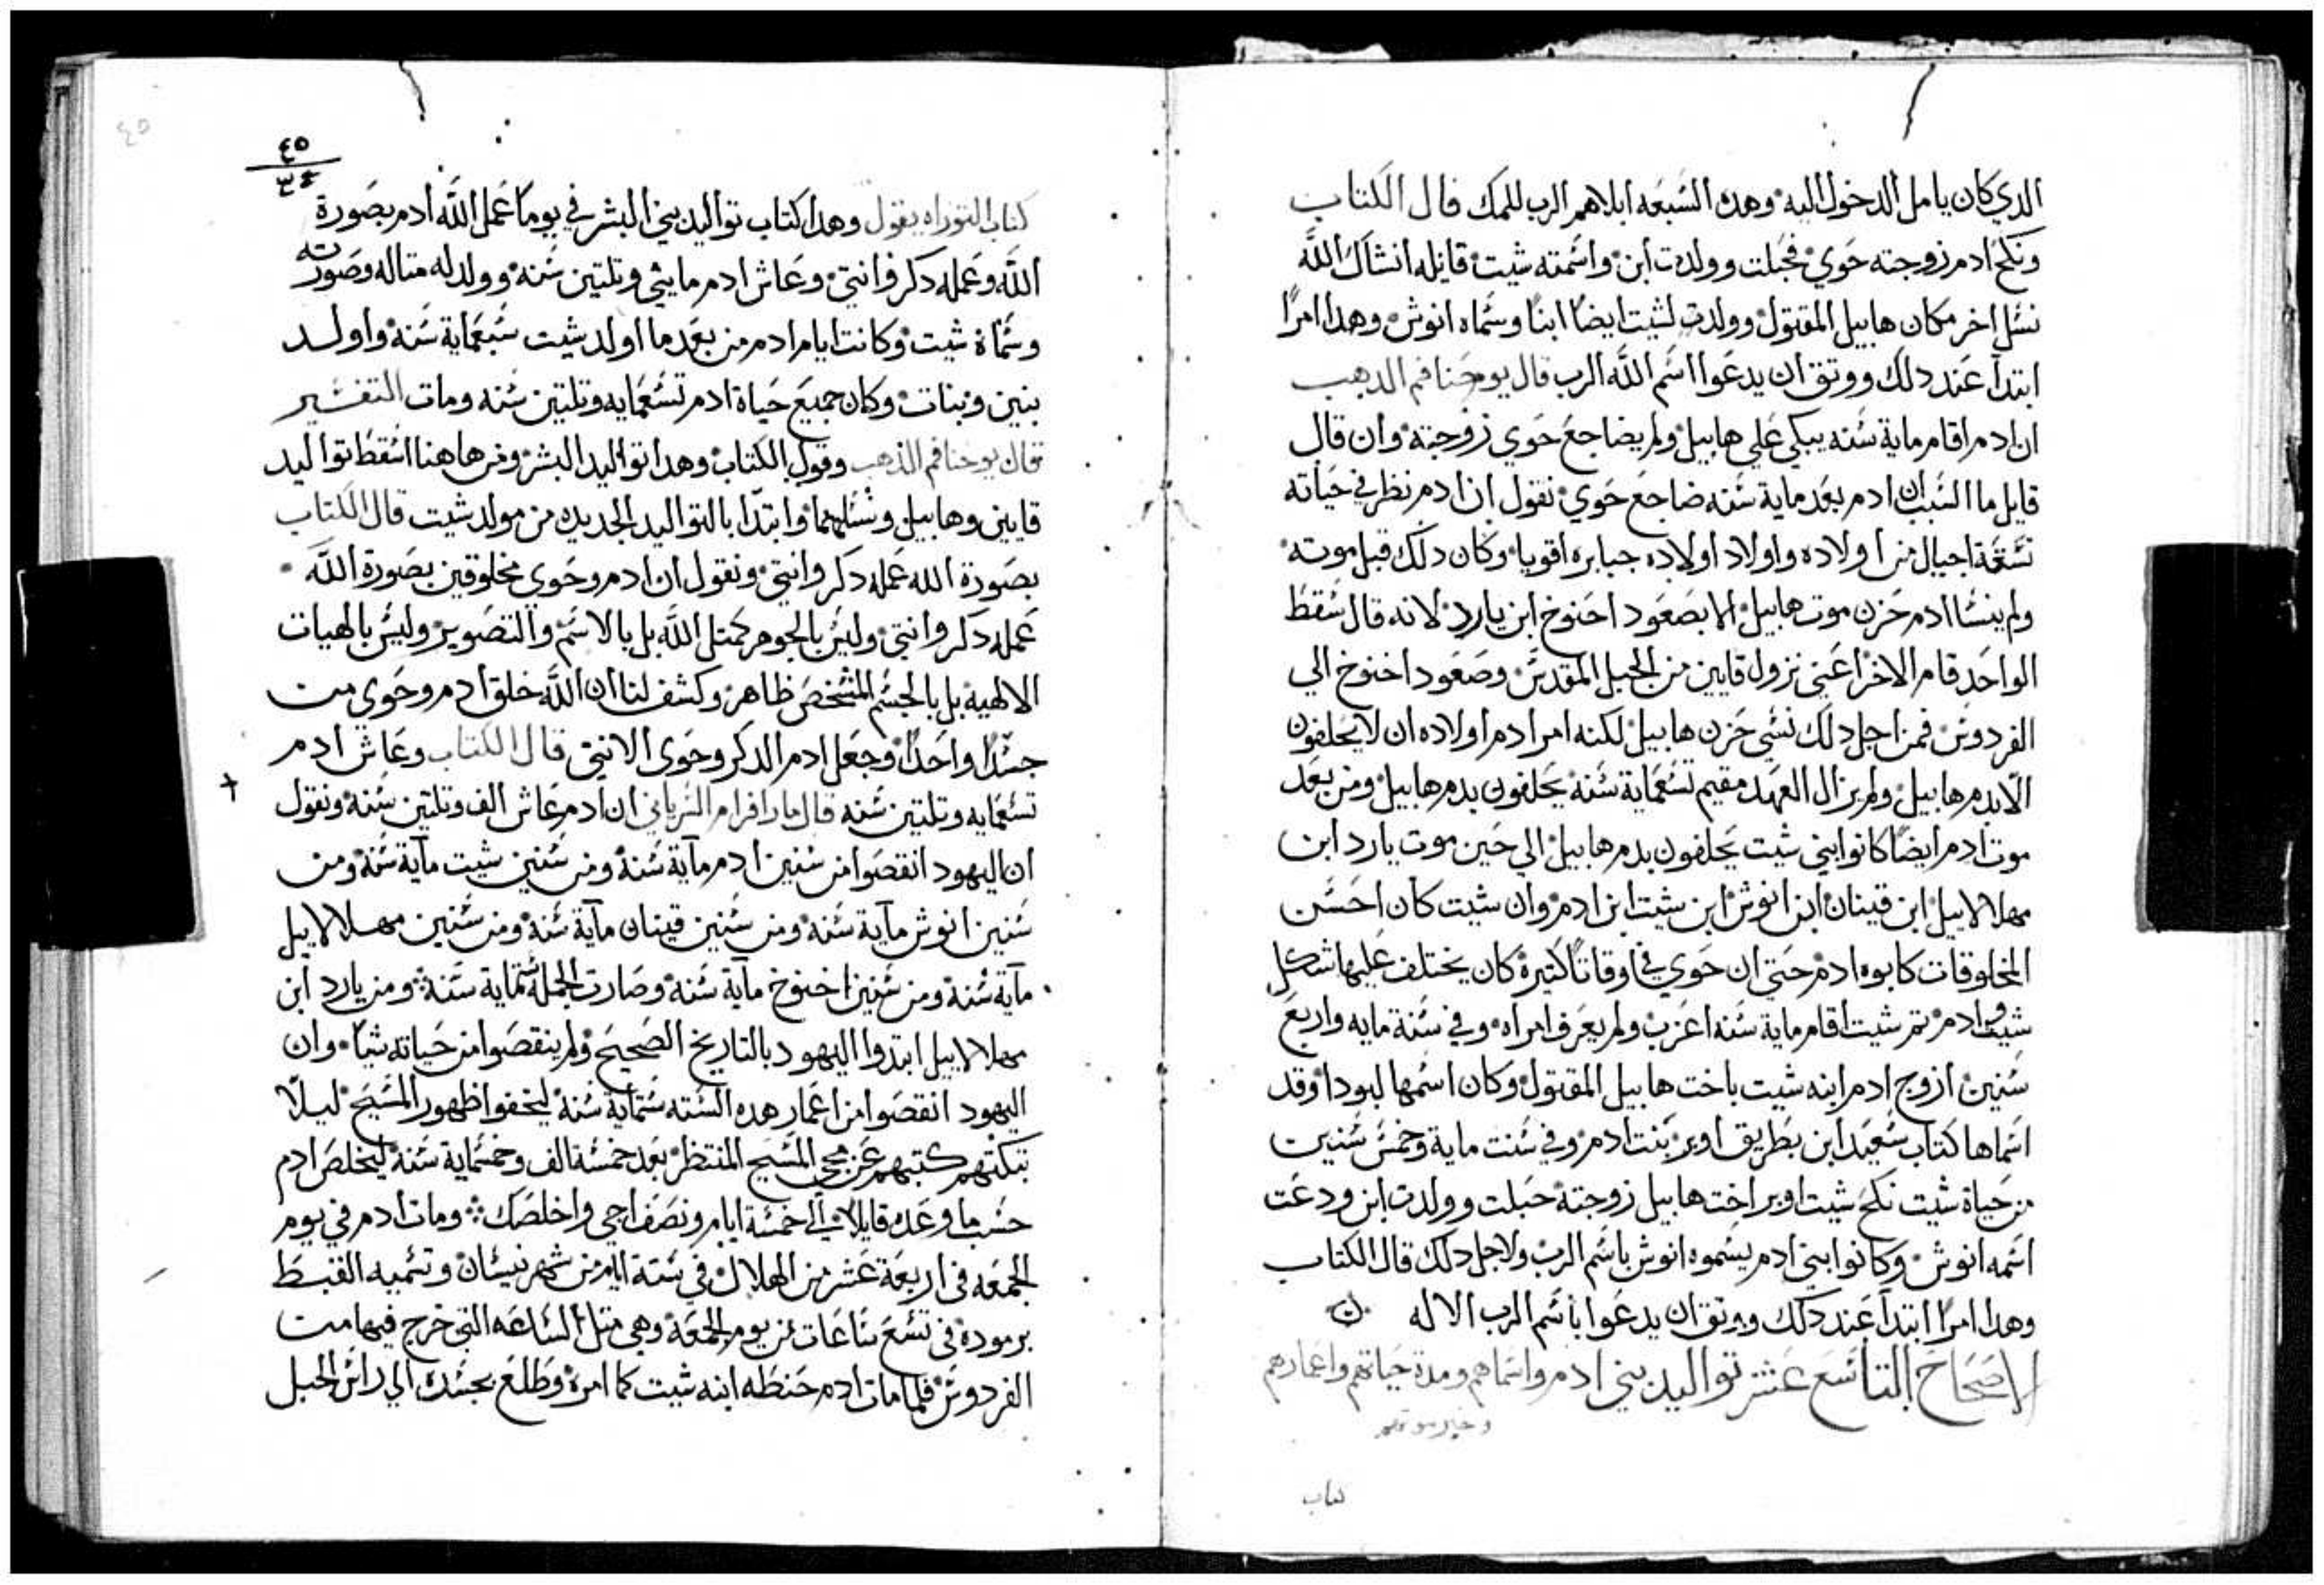 الدي كان يامل الدخول اليه وهده السبعه ابلاهم الرب للمك قال الكتاب
ونكح ادم زوجته حوي فحبلت وولدت ابن واسمته شيت قايله انشاك الله
نسل اخر مكان هابيل المقتول وولدت لشيت ايضا ابنا وسماه انوش وهدا امرا
ابتدا عند دلك ووتق ان يدعوا اسم الله الرب قال يوحنا فم الدهب
ان ادم اقام ماية سنه يبكي علي هابيل ولم يضاجع حوي زوجته وان قال
قايل ما السبب ان ادم بعد ماية سنه ضاجع حوي نقول ان ادم نظر في حياته
تسعة اجيال من اولاده واولاد اولاده جبابره اقويا وكان دلك قبل موته
ولم ينسا ادم حزن موت هابيل الا بصعود احنوخ ابن يارد لانه قال سقط
الواحد قام الاخر اعني نزول قايين من الجبل المقدس وصعود اخنوخ الي
الفردوس فمن اجل دلك نسي حزن هابيل لكنه امر ادم اولاده ان لا يحلفون
الا بدم هابيل ولم يزال العهد مقيم تسعماية سنه يحلفون بدم هابيل ومن بعد
موت ادم ايضا كانوا بني شيت يحلفون بدم هابيل الي حين موت يارد ابن
مهلالاييل ابن قينان ابن انوش ابن شيت ابن ادم وان شيت كان احسن
المخلوقات كابوه ادم حتي ان حوي في اوقاتا كتيرة كان يختلف عليها شكل
شيت وادم تم شيت اقام ماية سنه اعزب ولم يعرف امراه وفي سنة مايه واربع
سنين ازوج ادم ابنه شيت باخت هابيل المقتول وكان اسمها لبودا وقد
اسماها كتاب سعيد ابن بطريق اوبر بنت ادم وفي سنت ماية وخمس سنين
من حياة شيت نكح شيت اوبر اخت هابيل زوجته حبلت وولدت ابن ودعت
اسمه انوش وكانوا بني ادم يسموه انوش باسم الرب ولاجل دلك قال الكتاب
وهدا امرا ابتدا عند دلك ووتق ان يدعوا باسم الرب الاله
الاصحاح التاسع عشر تواليد بني ادم واسماهم ومدة حياتهم واعمارهم
كتاب
٤٥
٣٤
كتاب التوراه يقول وهدا كتاب تواليد بني البشر في يوم ما عمل الله ادم بصورة
الله وعمله دكر وانتي وعاش ادم مايتي وتلتين سنه وولد له متاله وصورته
وسماه شيت وكانت ايام ادم من بعد ما اولد شيت سبعماية سنه واولد
بنين وبنات وكان جميع حياة ادم تسعمايه وتلتين سنه ومات التفسير
قال يوحنا فم الذهب وقول الكتاب وهدا تواليد البشر ومن هاهنا اسقط تواليد
قايين وهابيل ونسلهما وابتدا بالتواليد الجديده من مولد شيت قال الكتاب
بصورة الله عمله دكر وانتي ونقول ان ادم وحوي مخلوقين بصورة الله
عمله دكر وانتي وليس بالجوهر كمتل الله بل بالاسم والتصوير وليس بالهيات
الالهية بل بالجسم المشخص ظاهر وكشف لنا ان الله خلق ادم وحوي من
جسدا واحدا وجعل ادم الدكر وحوي الانتي قال الكتاب وعاش ادم
تسعمايه وتلتين سنه قال مار افرام السرياني ان ادم عاش الف وتلتين سنه ونقول
ان اليهود انقصوا من سنين ادم مآية سنه ومن سنين شيت مآية سنه ومن
سنين انوش مآية سنه ومن سنين قينان مآية سنه ومن سنين مهلالاييل
مآية سنه ومن سنين اخنوخ مآية سنه وصارت الجمله ستماية سنة ومن يارد ابن
مهلالاييل ابتدوا اليهود بالتاريخ الصحيح ولم ينقصوا من حياته شيا وان
اليهود انقصوا من اعمار هده السته ستماية سنه ليخفوا ظهور المسيح ليلا
تبكتهم كتبهم عن مجي المسيح المنتظر بعد خمسة الف وخمسماية سنه ليخلص ادم
حسب ما وعده قايلا الي خمسة ايام ونصف اجي واخلصك ومات ادم في يوم
الجمعه في اربعة عشر من الهلال في ستة ايام من شهر نيسان وتسميه القبط
برموده في تسع ساعات من يوم الجمعة وهي متل الساعه التي خرج فيها من
الفردوس فلما مات ادم حنطه ابنه شيت كما امره وطلع بجسده الي راس الجبل